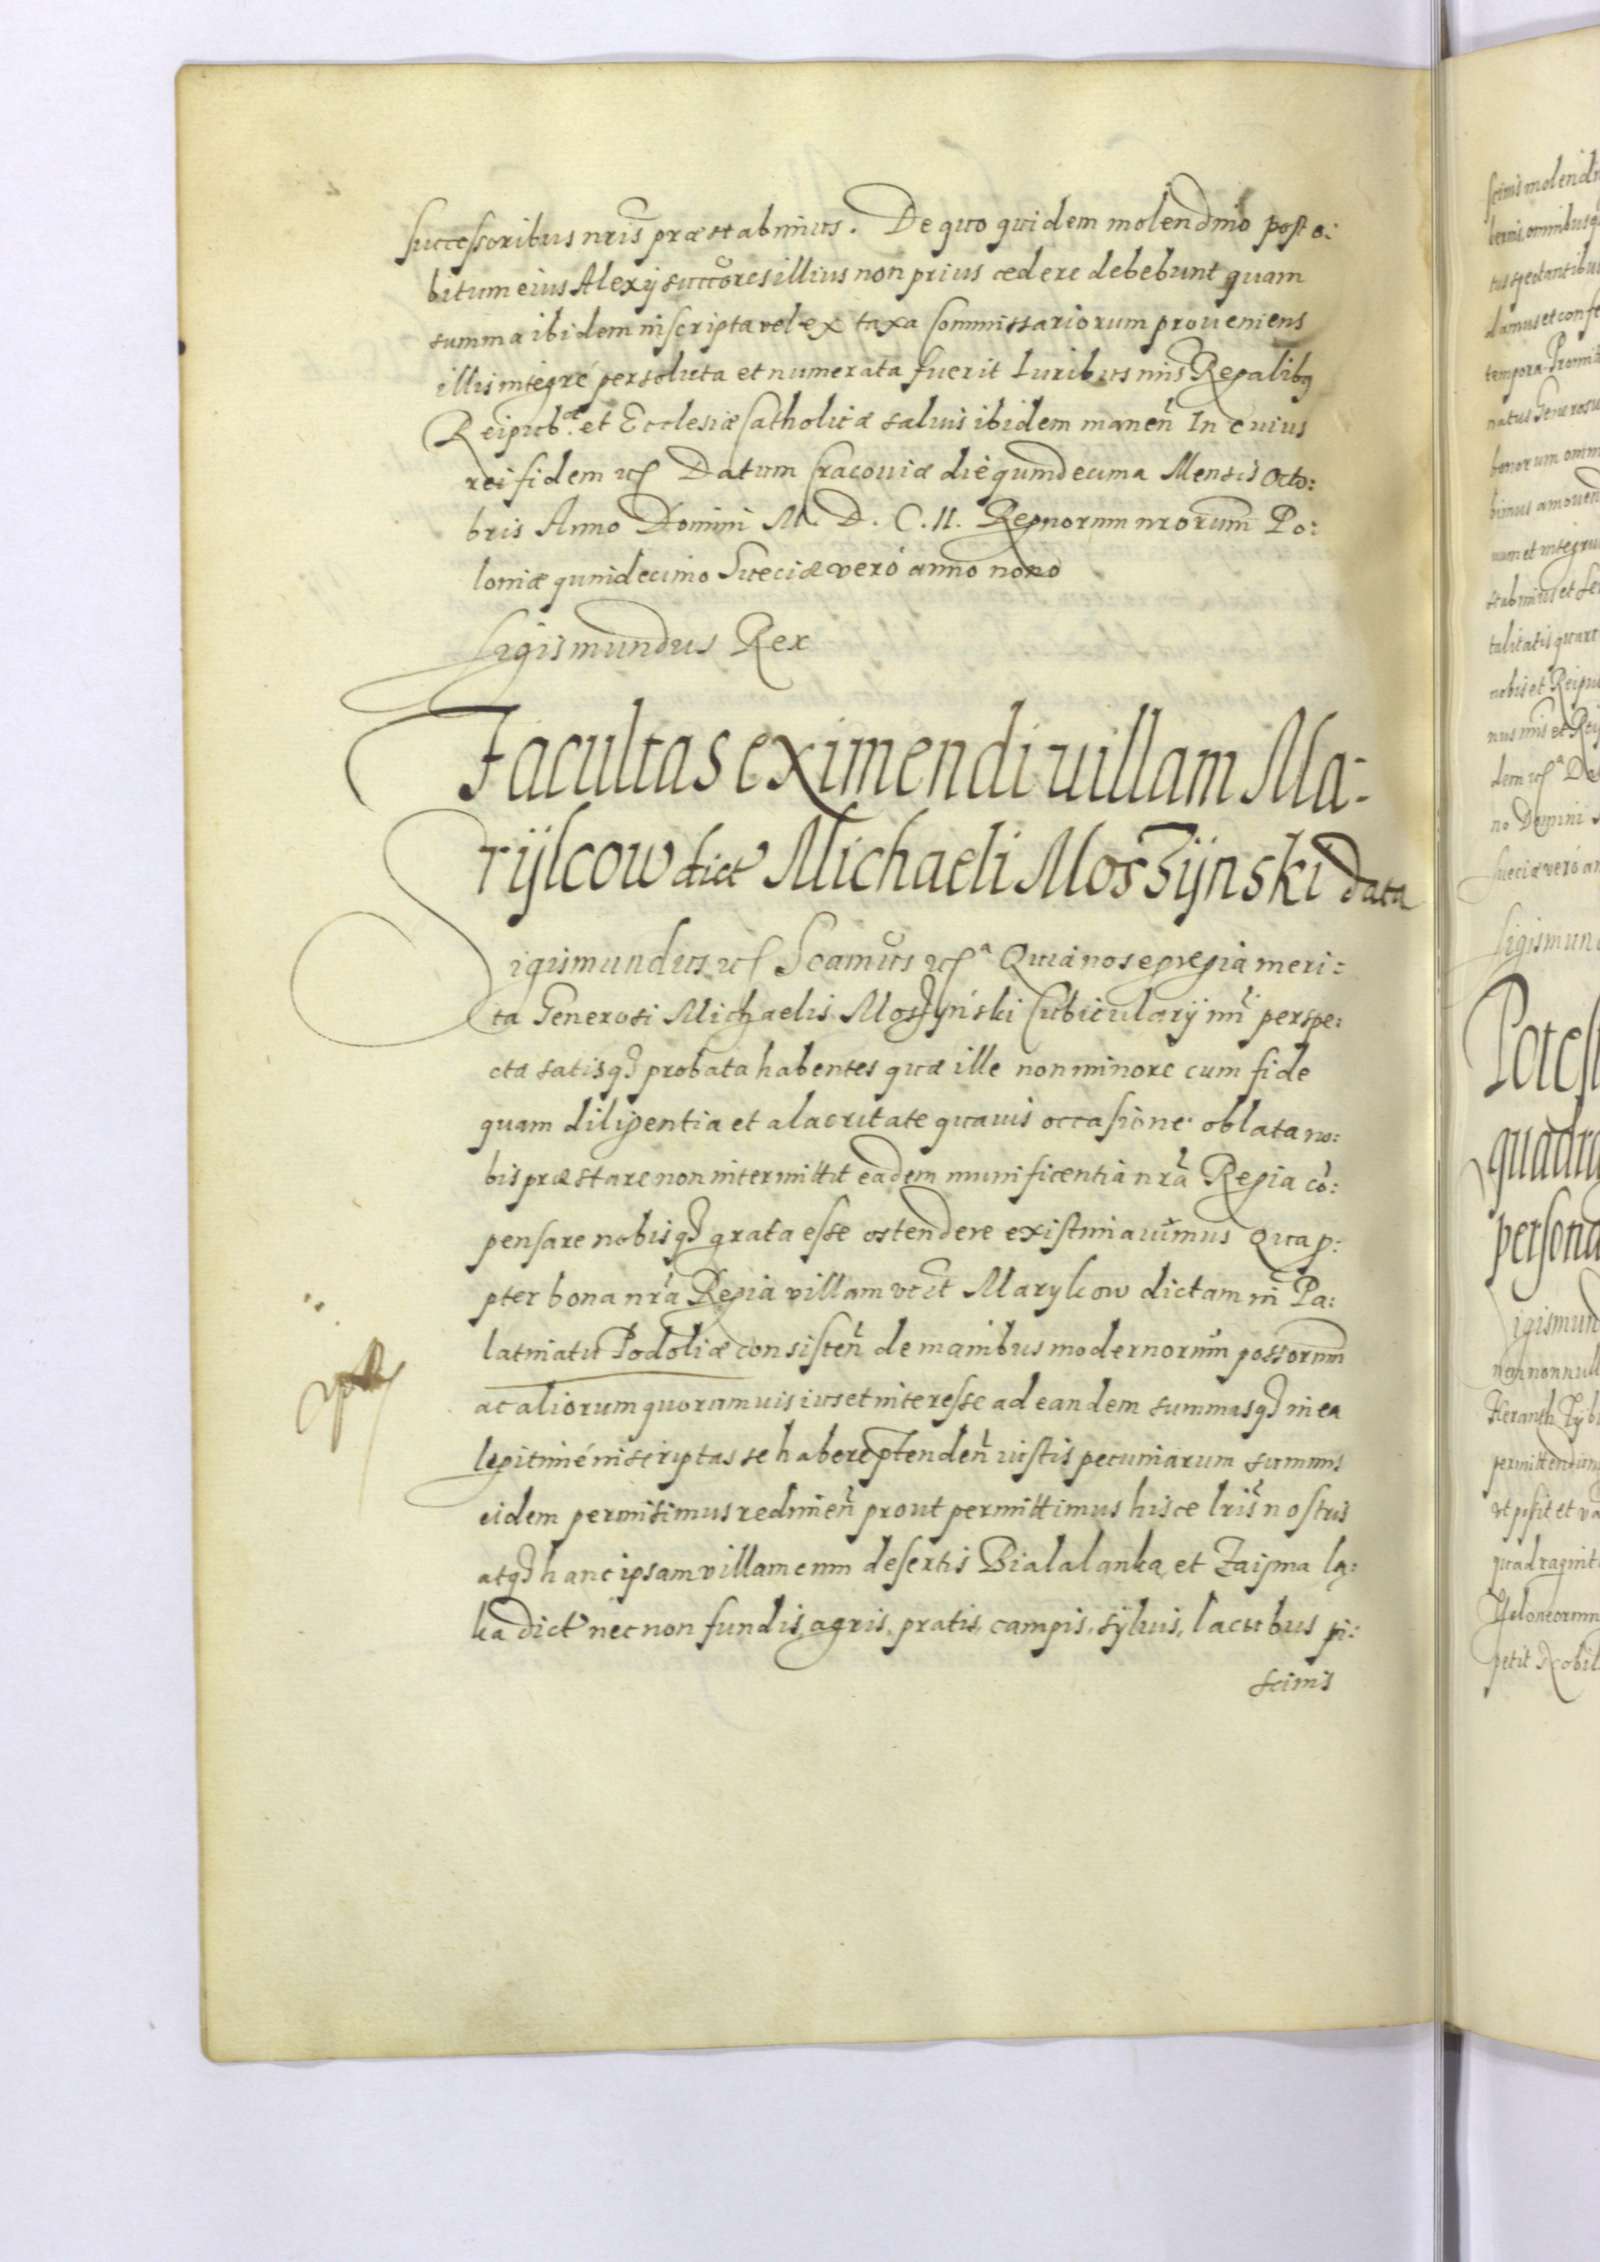 successoribus nris præstabimus. De quo quidem molendino post o:
bitum eius Alexij succores illius non prius cedere debebunt quam
summa ibidem inscripta vel ex taxa Commissariorum proueniens
illis integré persoluta et numerata fuerit Iuribus nris Regalibq
Reipubæ. et Ecclesiæ Catholicæ saluis ibidem manen In cuius
rei fidem etc Datum Cracouiæ die quindecima Mensis Octo:
bris Anno Domini M. D. C. II. Regnorum nrorum Po:
loniæ quindecimo Sueciæ veró anno nono
Sigismundus Rex
Facultas eximendi uillam Ma:
rijlcow dict Michaeli Moszijnski data
Sigismundus etc Scamus etca Quia nos egregia meri:
ta Generosi Michaelis Moszynski Cubicularij nri perspe:
cta satisq probata habentes quæ ille non minore cum fide
quam diligentia et alacritate quauis occasione oblata no:
bis præstare non intermittit eadem munificentia nra Regia cō:
pensare nobisq grata esse ostendere existimauimus Qua p:
pter bona nra Regia villam vett Marylcow dictam in Pa:
latinatu Podoliæ consisten de manibus modernorum possorum
ac aliorum quorumuis ius et interesse ad eandem summasq in ea
legitimé inscriptas se habere ptenden iustis pecuniarum summis
eidem permisimus redimen prout permittimus hisce lris nostris
atq hanc ipsam villam cum desertis Bialalanka et Zaijma lą:
ka dict nec non fundis, agris, pratis, campis, syluis, lacubus pi:
scinis